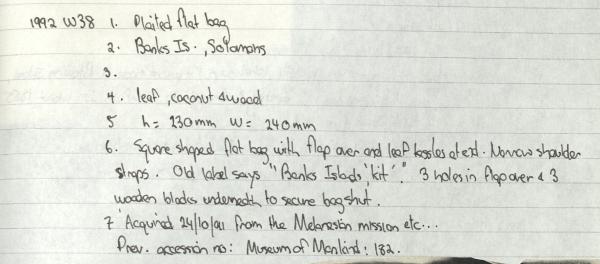 1992 W38 1. Plaited flat bag
2. Banks Is., Solomons
3.
4. leaf, coconut & wood
5 h= 230mm w= 240mm
6. Square shaped flat bag with flap over and leaf tassles at end. Narrow shoulder
straps. Old label says "Banks Islads 'kit'." 3 holes in flap over & 3
wooden blocks underneath to secure bag shut.
7 Acquired 24/10/91 from the Melanesian mission etc...
Prev. accession no: Museum of Mankind: 182.